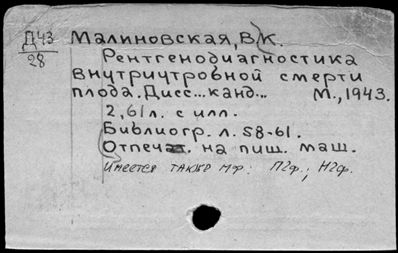 Д43
28
Малиновская, В.К.
Рентгенодиагностика
внутриутробной смерти
плода. Дисс... канд... М., 1943.
2, 61 л. с илл.
Библиогр. л. 58-61.
Отпечат. на пиш. маш.
Имеется также мф: П2ф.; Н2ф.